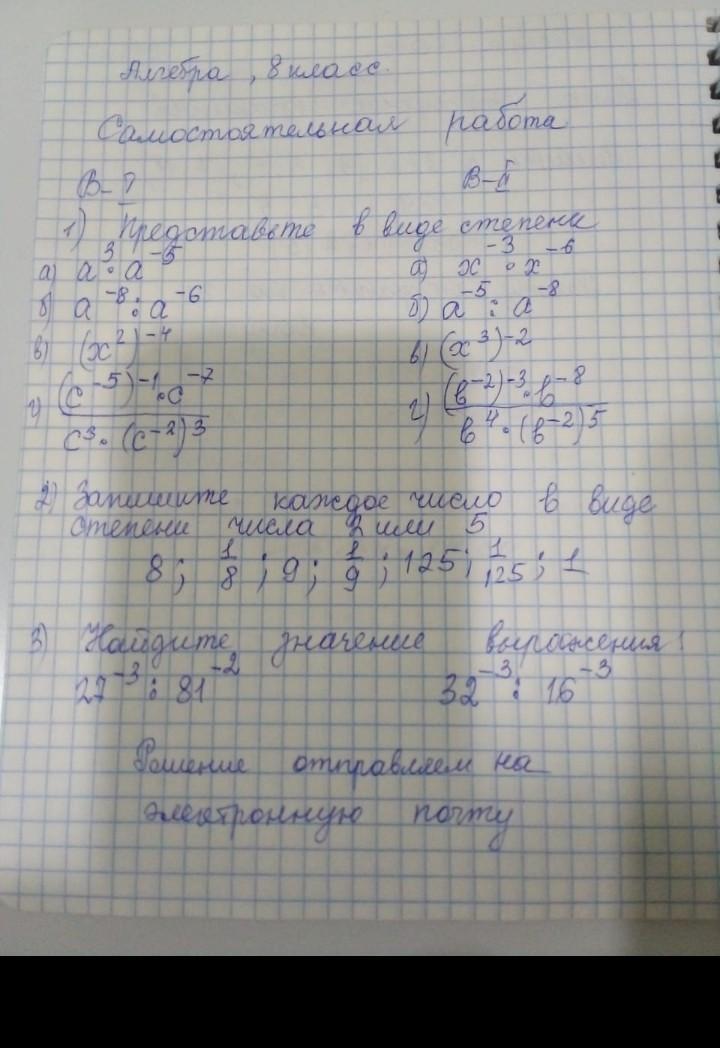 Алгебра, 8 класс.
Самостоятельная работа
В-I В-II
1) Представьте в виде степени
а) a³ · a⁻⁵ а) x⁻³ · x⁻⁶
б) a⁻⁸ : a⁻⁶ б) a⁻⁵ : a⁻⁸
в) (x²)⁻⁴ в) (x³)⁻²
г) (c⁻⁵)⁻¹ · c⁻⁷ / c³ · (c⁻²)³ г) (b⁻²)⁻³ · b⁻⁸ / b⁴ · (b⁻²)⁵
2) Запишите каждое число в виде
степени числа 2 или 5
8; 1/8; 9; 1/9; 125; 1/125; 1
3) Найдите значение выражения:
27⁻³ : 81⁻² 32⁻³ : 16⁻³
Решение отправляем на
электронную почту